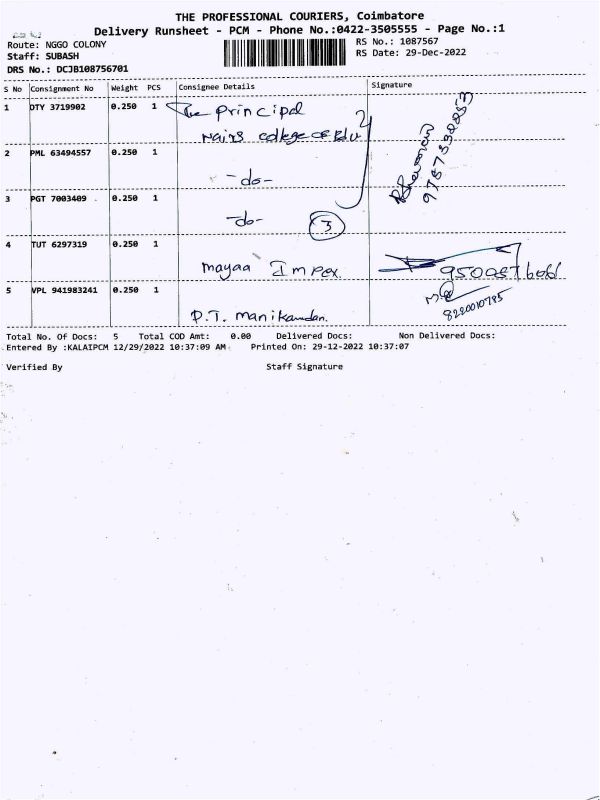 THE PROFESSIONAL COURIERS, Coimbatore
Delivery Runsheet - PCM - Phone No.:0422-3505555 - Page No.:1
Route: NGGO COLONY
RS No.: 1087567
Staff: SUBASH
RS Date: 29-Dec-2022
DRS No.: DCJB108756701
S No Consignment No Weight PCS Consignee Details Signature
1 DTY 3719902 0.250 1 The principal
Nairs college of Edu
2 PML 63494557 0.250 1
-do-
3 PGT 7003409 . 0.250 1
-do- 3
4 TUT 6297319 0.250 1
mayaa Impex
5 VPL 941983241 0.250 1
8220010785
P.T. Manikandan.
Total No. Of Docs: 5 Total COD Amt: 0.00 Delivered Docs: Non Delivered Docs:
Entered By :KALAIPCM 12/29/2022 10:37:09 AM Printed On: 29-12-2022 10:37:07
Verified By Staff Signature